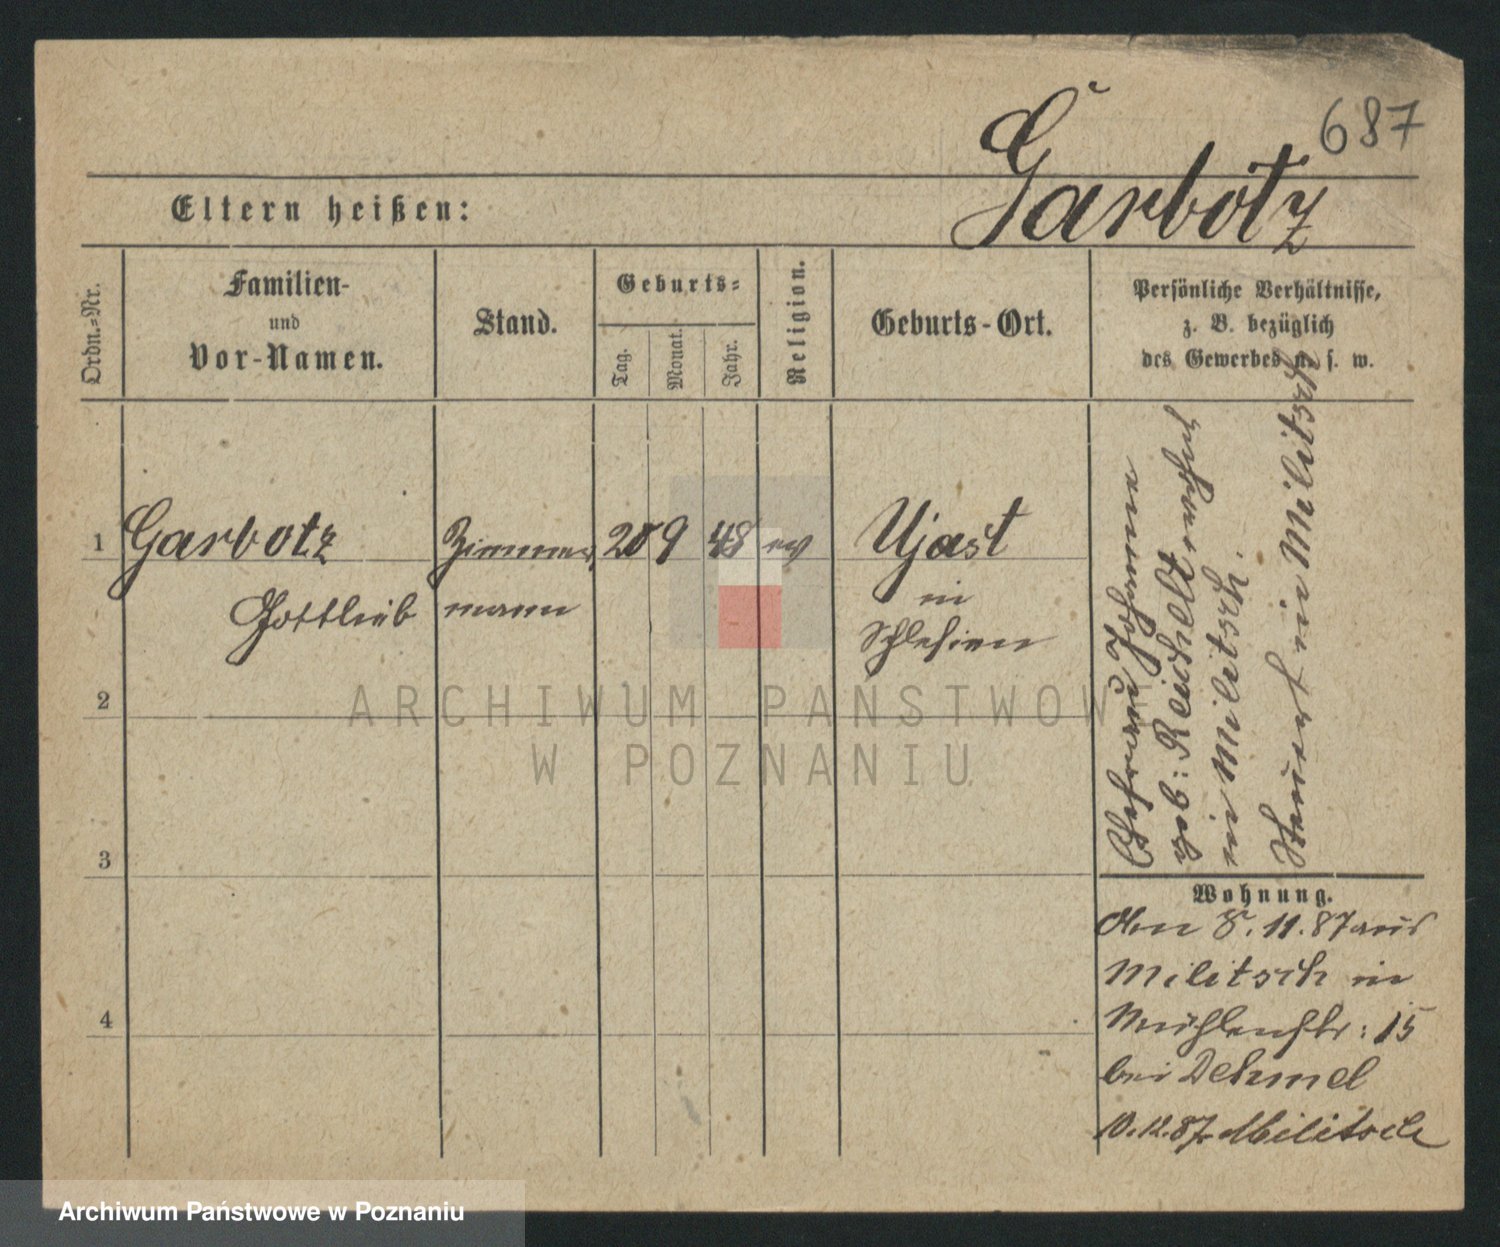 687
Garbotz
Eltern heißen:
Ordn.-Nr.
Familien-
und
Vor-Namen.
Stand.
Geburts-
Tag.
Monat.
Jahr.
Religion.
Geburts-Ort.
Persönliche Verhältnisse,
z. B. bezüglich
des Gewerbes u. s. w.
1 Garbotz Zimmer 20 9 48 ev Ujast
Gottlieb mann in
Schlesien
2
3
4
Ehefrau Johanne
geb: Reichelt
in Militsch.
Steuert in Militsch
Wohnung.
Den 8. 11. 87 aus
Militsch in
Mühlenstr: 15
bei Dehmel
10.12.87. Militsch
ARCHIWUM PAŃSTWOW
W POZNANIU
Archiwum Państwowe w Poznaniu